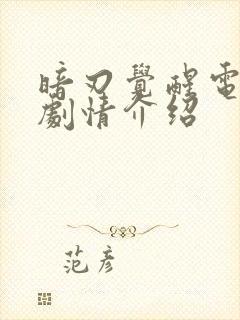 暗刃覺醒電
劇情介绍
范彦